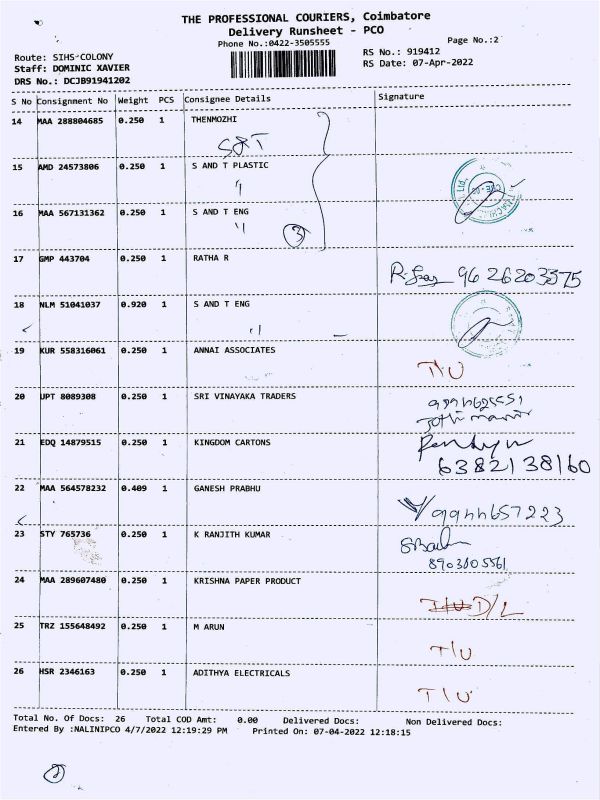 THE PROFESSIONAL COURIERS, Coimbatore
Delivery Runsheet - PCO
Phone No.:0422-3505555
Page No.:2
Route: SIHS-COLONY
RS No.: 919412
Staff: DOMINIC XAVIER
RS Date: 07-Apr-2022
DRS No.: DCJB91941202
S No Consignment No Weight PCS Consignee Details Signature
14 MAA 288804685 0.250 1 THENMOZHI
S&T
15 AMD 24573806 0.250 1 S AND T PLASTIC
"
16 MAA 567131362 0.250 1 S AND T ENG
"
3
17 GMP 443704 0.250 1 RATHA R
9626203375
18 NLM 51041037 0.920 1 S AND T ENG
"
19 KUR 558316061 0.250 1 ANNAI ASSOCIATES
T/U
20 UPT 8089308 0.250 1 SRI VINAYAKA TRADERS
21 EDQ 14879515 0.250 1 KINGDOM CARTONS
6382138160
22 MAA 564578232 0.409 1 GANESH PRABHU
9944657223
23 STY 765736 0.250 1 K RANJITH KUMAR
8903805561
24 MAA 289607480 0.250 1 KRISHNA PAPER PRODUCT
D/L
25 TRZ 155648492 0.250 1 M ARUN
T/U
26 HSR 2346163 0.250 1 ADITHYA ELECTRICALS
T/U
Total No. Of Docs: 26 Total COD Amt: 0.00 Delivered Docs: Non Delivered Docs:
Entered By :NALINIPCO 4/7/2022 12:19:29 PM Printed On: 07-04-2022 12:18:15
2